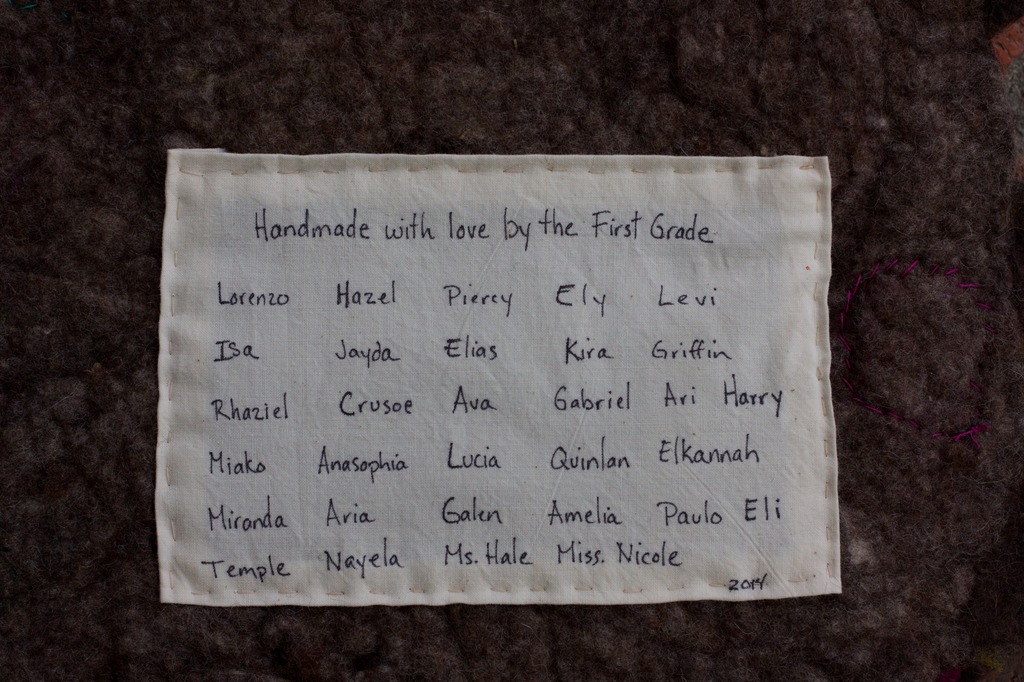 Handmade with love by the First Grade
Lorenzo Hazel Piercy Ely Levi
Isa Jayda Elias Kira Griffin
Rhaziel Crusoe Ava Gabriel Ari Harry
Miako Anasophia Lucia Quinlan Elkannah
Miranda Aria Galen Amelia Paulo Eli
Temple Nayela Ms. Hale Miss. Nicole
2014